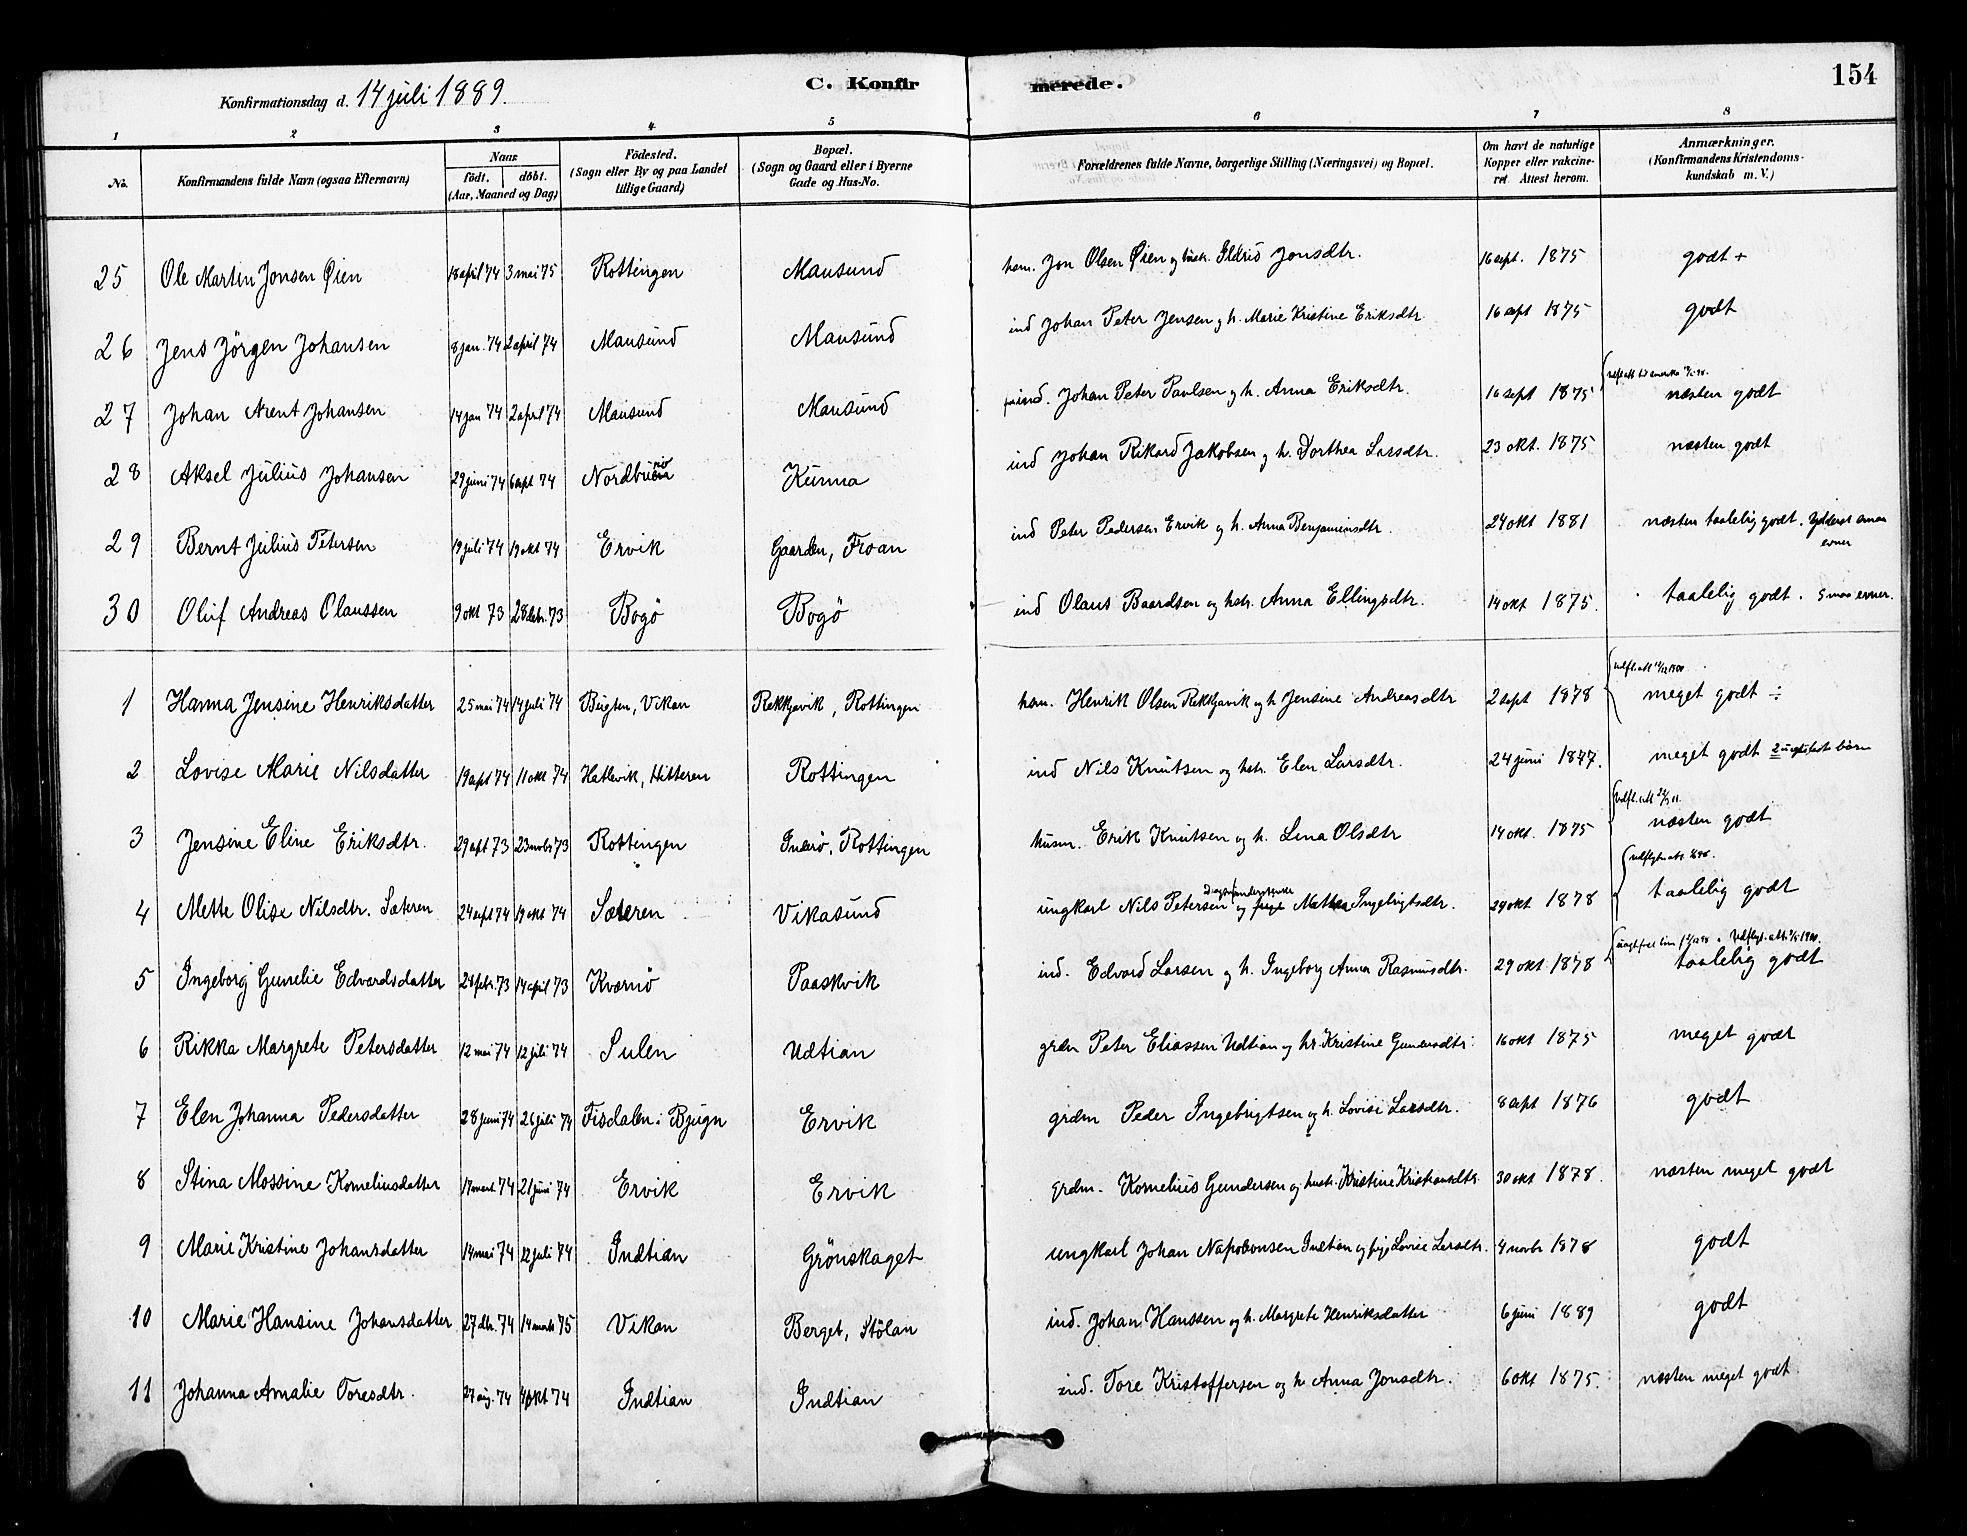 Konfirmationsdag d. 14 juli 1889. C. Konfirmerede. 154
1 2 3 4 5 6 7 8
No. Konfirmandens fulde Navn (ogsaa Efternavn) Naar födt. döbt. (Aar, Maaned og Dag) Födested. (Sogn eller By og paa Landet tillige Gaard) Bopæl. (Sogn og Gaard eller i Byerne Gade og Hus-No. Forældrenes fulde Navne, borgerlige Stilling (Næringsvei) og Bopæl. Om havt de naturlige Kopper eller vakcineret. Attest herom. Anmærkninger. (Konfirmandens Kristendomskundskab m. V.)
25 Ole Martin Jonsen Øien 18 april 74 3 mai 75 Rottingen Mausund Jon Olsen Øien og hustr. Ildrid Jonsdtr. 16 sept. 1875 godt +
26 Jens Jörgen Johansen 8 jan. 74 2 april 74 Mausund Mausund ind Johan Peter Jensen og h. Marie Kristine Eriksdtr 16 sept 1875 godt
27 Johan Arent Johansen 14 jan 74 2 april 74 Mausund Mausund ind. Johan Peter Paulsen og h. Anna Eriksdtr. 16 sept 1875 næsten godt
28 Aksel Julius Johansen 29 juni 74 6 sept 74 Kunna ind Johan Rikard Jakobsen og h. Dorthea Larsdtr. 23 okt. 1875 næsten godt
29 Bernt Julius Petersen 19 juli 74 19 okt 74 Ervik Gaarden, Froan ind Peter Pedersen Ervik og h. Anna Benjaminsdtr. 24 okt 1881 næsten taalelig godt. Yderst smaa evner
30 Oluf Andreas Olaussen 9 okt 73 73 Bogö Bogö ind Olaus Baardsen og hstr. Anna Ellingsdtr. 14 okt 1875. taalelig godt. smaa evner.
1 Hanna Jensine Henriksdatter 25 mai 74 14 juli 74 Vikan Rekkjavik, Rottingen Henrik Olsen Rekkjavik og h Jensine Andreasdtr 2 sept 1878 meget godt ÷
2 Lovise Marie Nilsdatter 19 sept 74 11 okt 74 Hatlevik, Hitteren Rottingen ind Nils Knutsen og hstr. Elen Larsdtr. 24 juni 1877. meget godt
3 Jensine Eline Eriksdtr. 29 sept 73 23 novbr 73 Rottingen Inerö, Rottingen husm. Erik Knutsen og h. Lina Olsdtr 14 okt. 1875 næsten godt
4 Mette Olise Nilsdtr. Sæteren 24 sept 74 19 okt 74 Sæteren Vikasund ungkarl Nils Petersen og Ingebrigtsdtr. 29 okt 1878 taalelig godt
5 Ingeborg Gunelie Edvardsdatter 24 febr. 73 14 april 73 Kvernö Paaskvik ind. Edvard Larsen og h. Ingeborg Anna Rasmusdtr. 29 okt 1878 taalelig godt
6 Rikka Margrete Petersdatter 12 mai 74 12 juli 74 Sulen Udtian grdm Peter Eliassen Udtian og hr. Kristine Gundersdtr. 16 okt 1875 meget godt
7 Elen Johanna Pedersdatter 28 juni 74 26 juli 74 Fisdalen i Bjugn Ervik grdm Peder Ingebrigtsen og h. Lovise Larsdtr. 8 sept 1876 godt
8 Stina Mossine Korneliusdatter 17 marts 74 21 juni 74 Ervik Ervik grdm. Kornelius Gundersen og hustr. Kristine Kristiansdtr. 30 okt 1878. næsten meget godt
9 Marie Kristine Johansdatter 14 mai 74 12 juli 74 Indtian Grönskaget ungkarl Johan Napoleonsen Indtian og pige Lovise Larsdtr. 4 novbr 1878 godt
10 Marie Hansine Johansdatter 27 dbr. 74 14 marts 75 Vikan Berget, Stölan ind. Johan Hanssen og h. Margrete Henriksdatter 6 juni 1889 godt
11 Johanna Amalie Toresdtr. 27 aug. 74 4 okt 74 Indtian Indtian ind. Tore Kristoffersen og h Anna Jonsdtr. 6 okt 1875. næsten meget godt